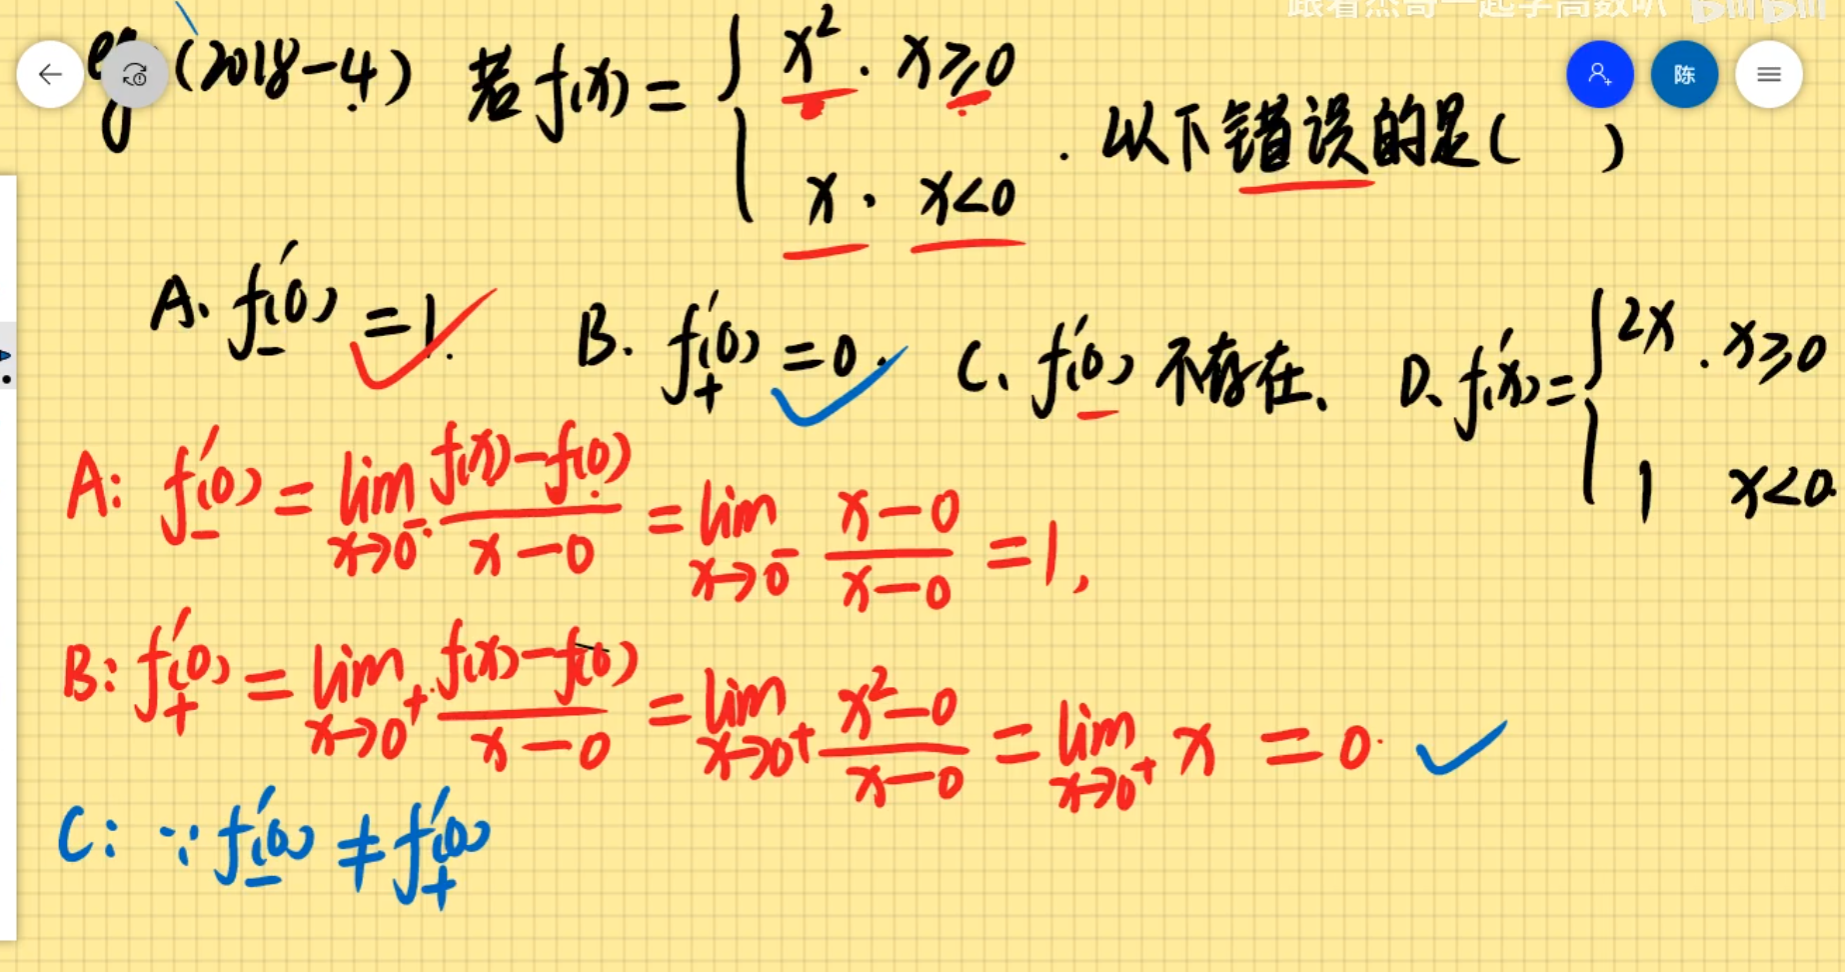 跟着杰哥一起学高数叭 bilibili
陈
eg (2018-4) 若 f(x) = { x², x≥0
x, x<0 . 以下错误的是( )
A. f₋'(0) = 1. B. f₊'(0) = 0. C. f'(0) 不存在. D. f'(x) = { 2x, x≥0
1 x<0.
A: f₋'(0) = lim x→0⁻ (f(x)-f(0))/(x-0) = lim x→0⁻ (x-0)/(x-0) = 1,
B: f₊'(0) = lim x→0⁺ (f(x)-f(0))/(x-0) = lim x→0⁺ (x²-0)/(x-0) = lim x→0⁺ x = 0.
C: ∵ f₋'(0) ≠ f₊'(0)